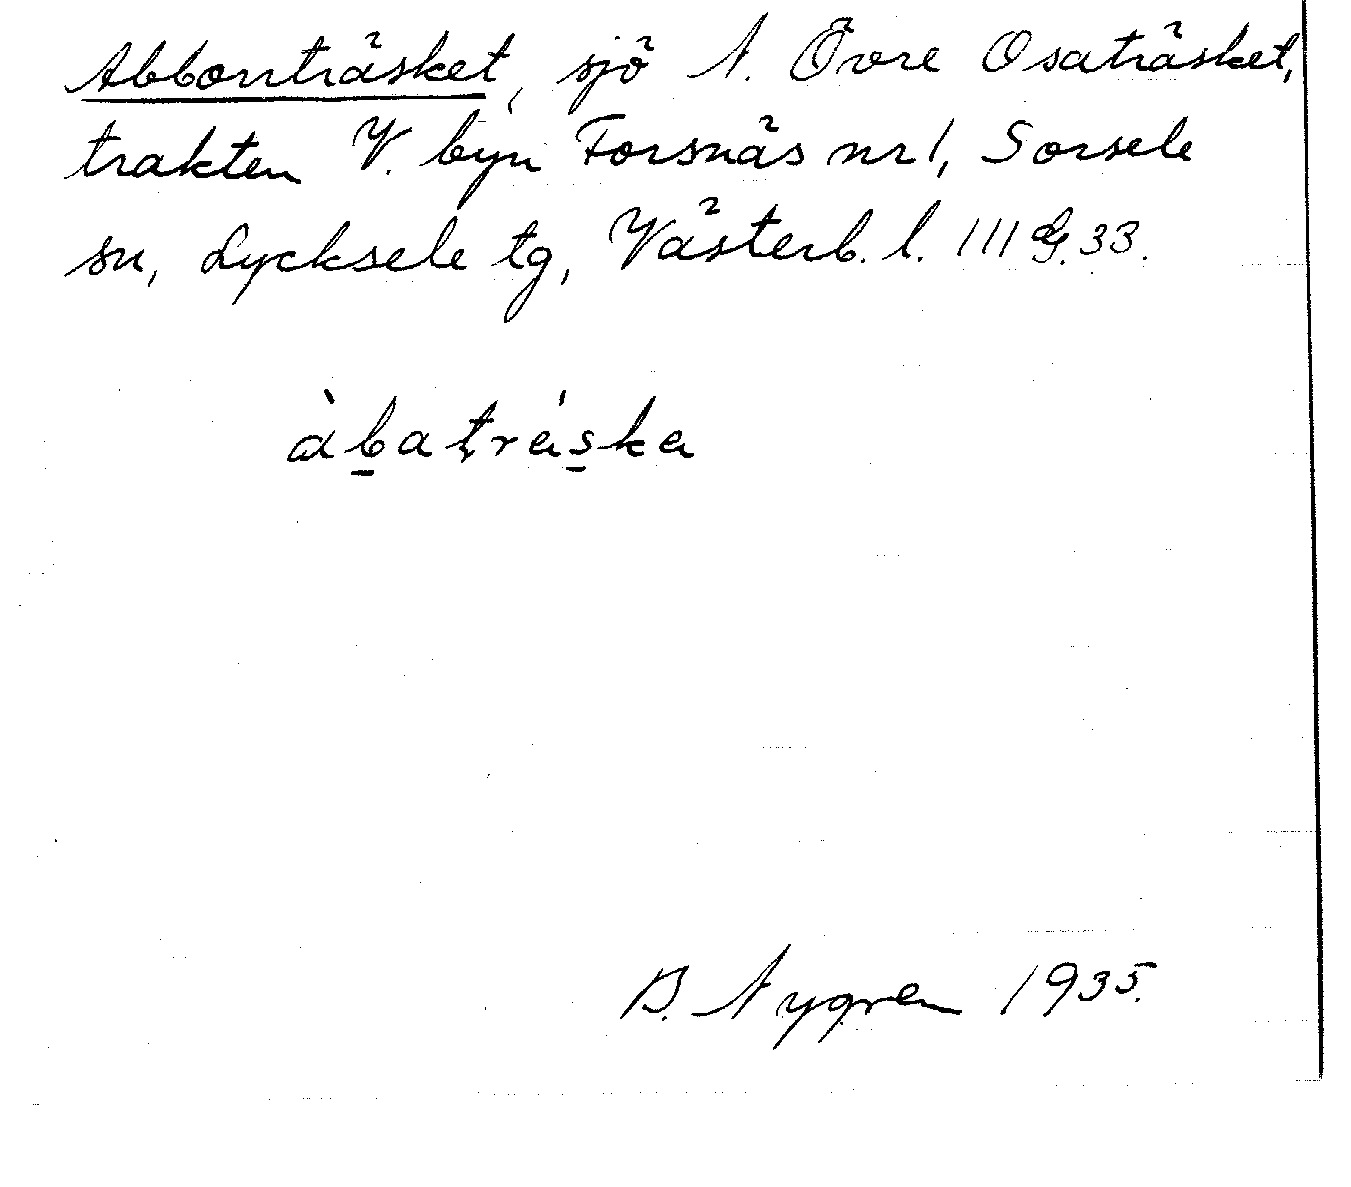 Abborrträsket, sjö N. Övre Osaträsket,
trakten V. byn Forsnäs nr 1, Sorsele
sn, Lycksele tg, Västerb. l. 111 33.
àb̲atrá̈s̲ka
B. Nygren 1935.